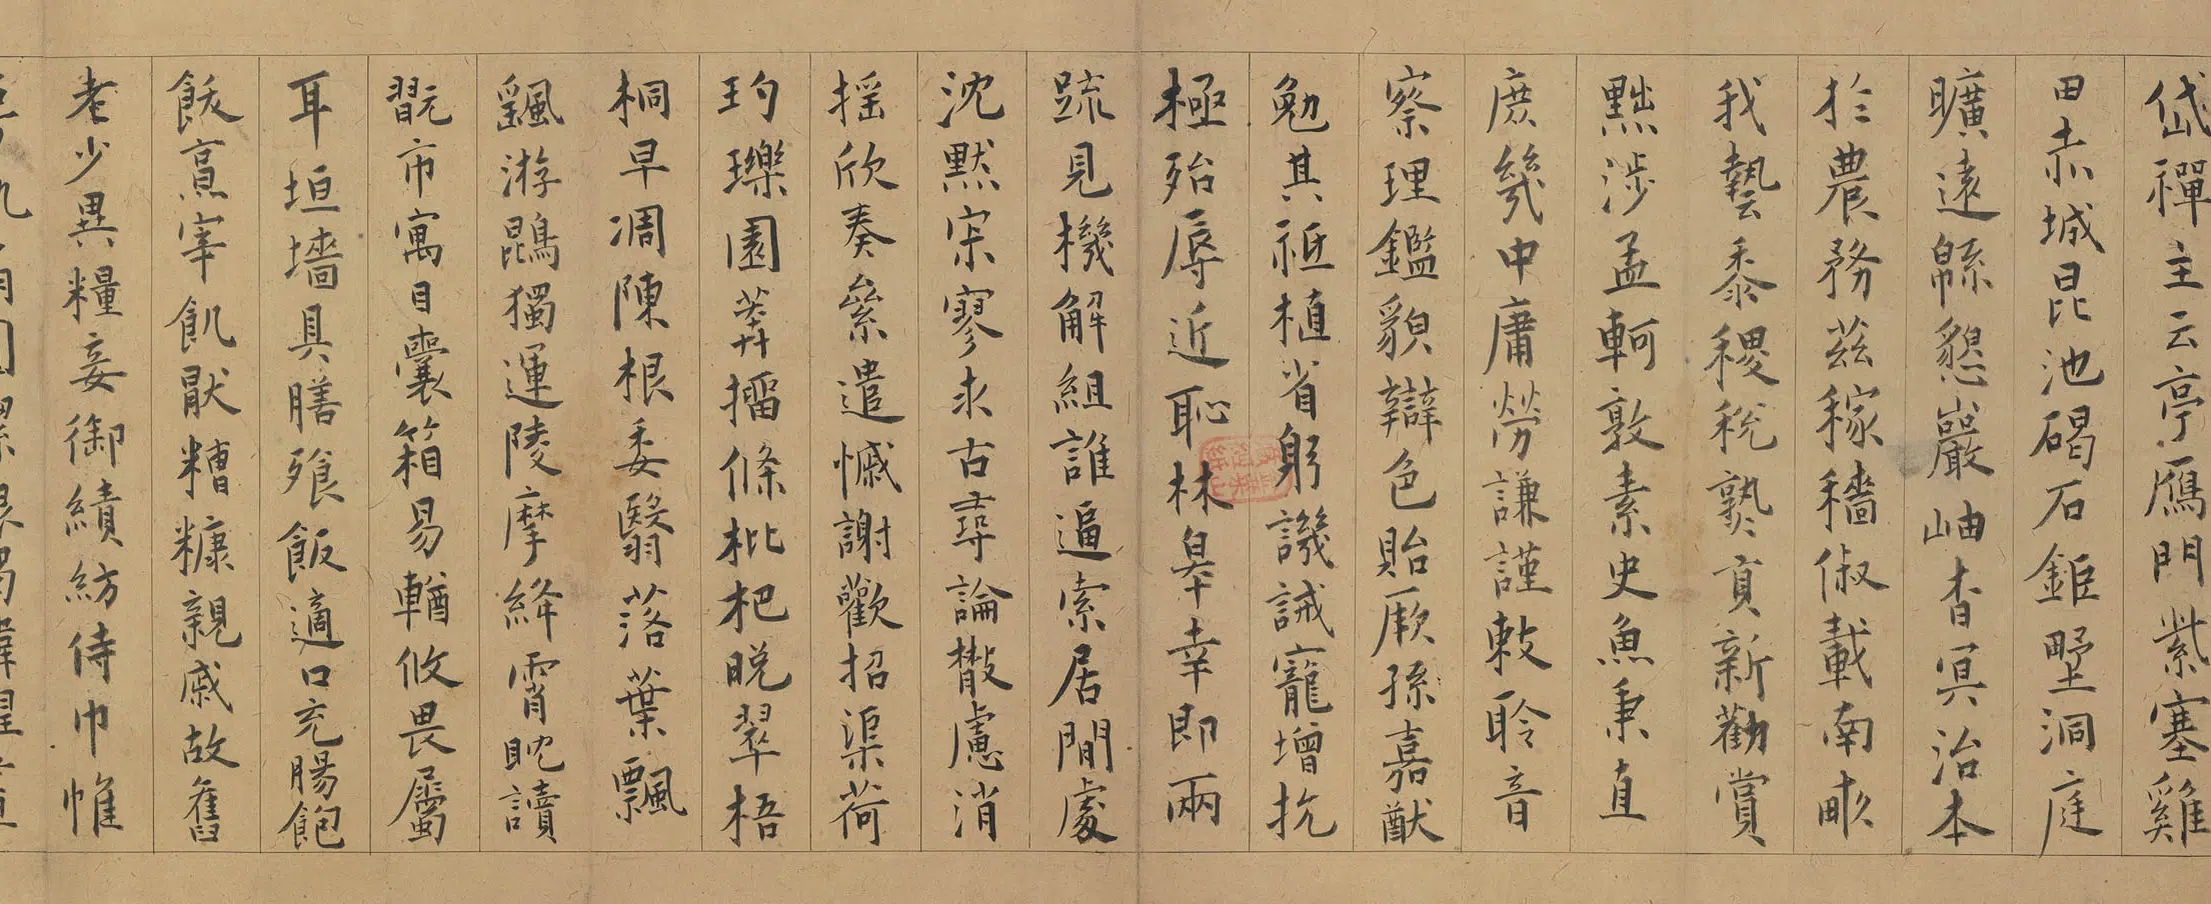 岱禪主云亭鴈門紫塞雞
田赤城昆池碣石鉅野洞庭
曠遠緜懇巖岫杳冥治本
於農務茲稼穡俶載南畝
我藝黍稷稅熟貢新勸賞
黜涉孟軻敦素史魚秉直
庶幾中庸勞謙謹敕聆音
察理鑑貌辯色貽厥孫嘉猷
勉其祗植省躬譏誡寵增抗
極殆辱近恥林皋幸即兩
疏見機解組誰逼索居閒處
沈默寂寥求古尋論散慮消
搖欣奏絫遣慼謝歡招渠荷
玓瓅園莽擂條枇杷晚翠梧
桐早凋陳根委翳落葉飄
颻游鵾獨運陵摩絳霄耽讀
翫市寓目囊箱易輶攸畏屬
耳垣墻具膳飱飯適口充腸飽
飫烹宰飢厭糟糠親戚故舊
老少異糧妾御績紡侍巾帷